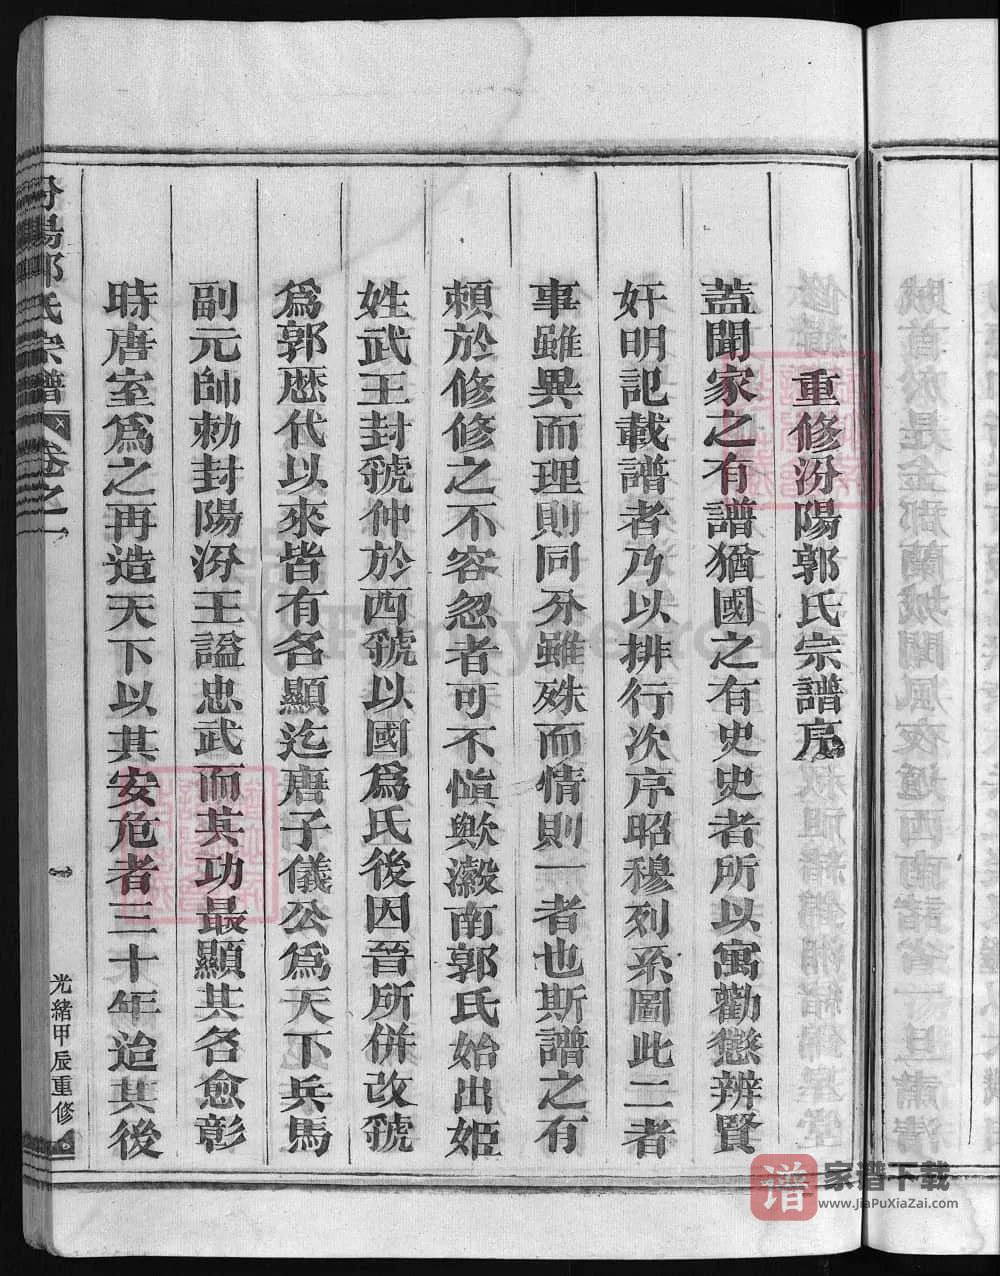 重修汾陽郭氏宗譜序
蓋聞家之有譜猶國之有史史者所以寓勸懲辨賢
奸明記載譜者乃以排行次序昭穆列系圖此二者
事雖異而理則同分雖殊而情則一者也斯譜之有
賴於修修之不容忽者可不愼歟瀫南郭氏始出姬
姓武王封虢仲於西虢以國爲氏後因晉所併改虢
爲郭歷代以來皆有名顯迄唐子儀公爲天下兵馬
副元帥勅封陽汾王謚忠武而其功最顯其名愈彰
時唐室爲之再造天下以其安危者三十年迨其後
汾陽郭氏宗譜 卷之一
一
光緒甲辰重修
家譜下载
www.JiaPuXiaZai.com
FamilySearch